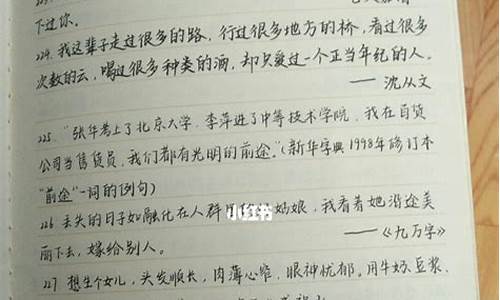 下过你。
224. 我这辈子走过很多的路，行过很多地方的桥，看过很多
次数的云，喝过很多种类的酒，却只爱过一个正当年纪的人。
——沈从文
225. “张华考上了北京大学，李萍进了中等技术学院，我在百货
公司当售货员，我们都有光明的前途。”（新华字典1998年修订本
“前途”一词的例句）
226 丢失的日子如融化在人群里的 姑娘，我看着她沿途美
丽下去，嫁给别人。
——《九万字》
227 想生个女儿，头发顺长，肉薄心窄，眼神忧郁。用牛奶豆浆、
小红书